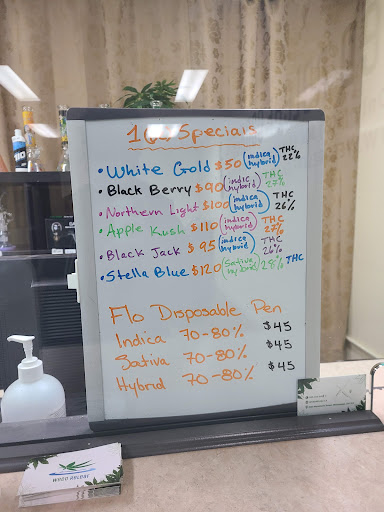 Specials
• White Gold $50 (indica hybrid) THC 22%
• Black Berry $90 (indic hybrid) THC 27%
• Northern Light $100 (indica hybrid) THC 26%
• Apple Kush $110 (indica hybrid) THC 27%
• Black Jack $95 (indica hybrid) THC 26%
• Stella Blue $120 (Sativa hybrid) 28% THC
Flo Disposable Pen
Indica 70-80% $45
Sativa 70-80% $45
Hybrid 70-80% $45